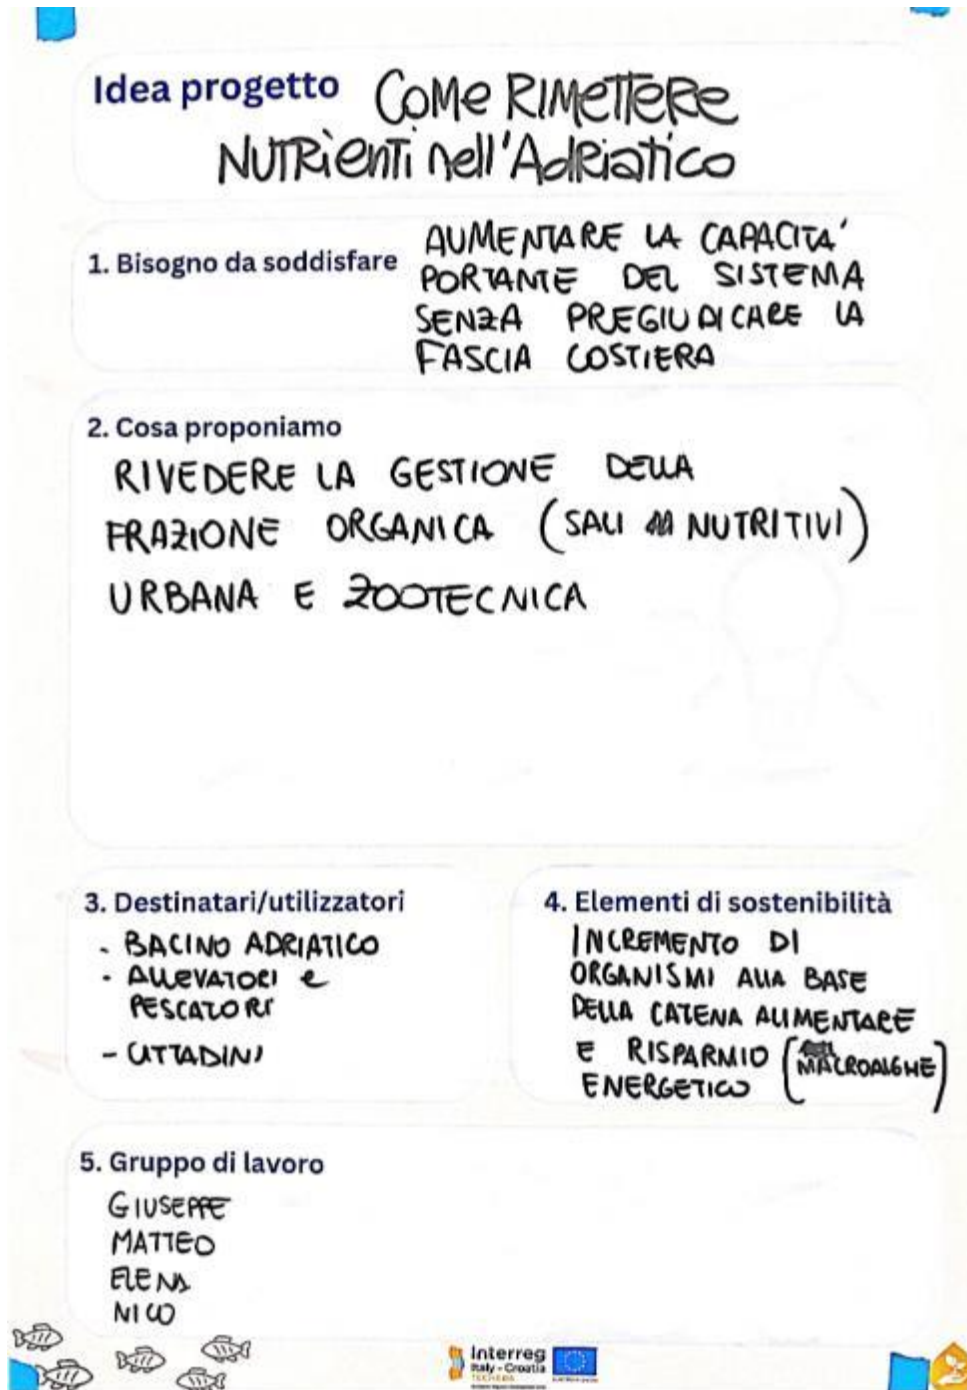 Idea progetto COMe RIMETTERE
NUTRIENTI nell'ADRIATICO
1. Bisogno da soddisfare
AUMENTARE LA CAPACITA'
PORTANTE DEL SISTEMA
SENZA PREGIUDICARE LA
FASCIA COSTIERA
2. Cosa proponiamo
RIVEDERE LA GESTIONE DELLA
FRAZIONE ORGANICA (SALI NUTRITIVI)
URBANA E ZOOTECNICA
3. Destinatari/utilizzatori
- BACINO ADRIATICO
- ALLEVATORI e
PESCATORI
- CITTADINI
4. Elementi di sostenibilità
INCREMENTO DI
ORGANISMI ALLA BASE
DELLA CATENA ALIMENTARE
E RISPARMIO (MACROALGHE)
ENERGETICO
5. Gruppo di lavoro
GIUSEPPE
MATTEO
ELENA
NICO
Interreg
Italy - Croatia